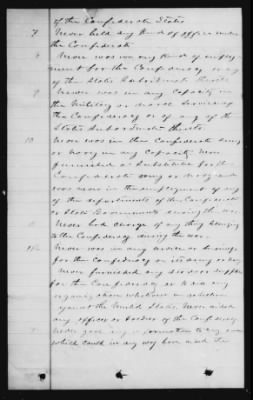 of the Confederate States
7 Never held any kind of office under
the Confederate
8 Never was in any kind of employ-
ment for the Confederacy or any
of the States Subordinate thereto
9 Never was in any capacity in
the Military or Naval Service of
the Confederacy or of any of the
States Subordinate thereto
10 Never was in the Confederate Army
or Navy in any Capacity Nor
furnished a Substitute for the
Confederate Army or Navy and
was never in the employment of any
of the departments of the Confederate
or State Governments during the war
Never had charge of any thing belonging
to the Confederacy during the war
Never was in any service or business
for the Confederacy or its Army or Navy
Never furnished any stores or supplies
for the Confederacy or to any
whatever in rebellion
against the United States. Never aided
any officer or soldier of the Confederacy
Never gave any information to any one
which could in any way